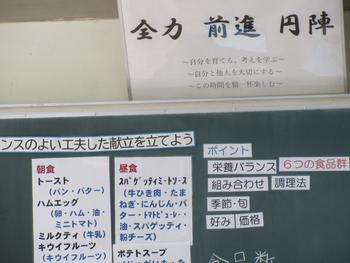 全力 前進 円陣
～自分を育てる、考えを学ぶ～
～自分と他人を大切にする～
～この時間を精一杯楽しむ～
ンスのよい工夫した献立を立てよう
朝食
トースト
(パン・バター)
ハムエッグ
(卵・ハム・油・
ミニトマト)
ミルクティ(牛乳)
キウイフルーツ
(キウイフルーツ)
昼食
スパゲッティミートソース
(牛ひき肉・たま
ねぎ・にんじん・バ
ター・トマトピューレー・
油・スパゲッティ・
粉チーズ)
ポテトスープ
ポイント
栄養バランス 6つの食品群
組み合わせ 調理法
季節・旬
好み 価格
食品数